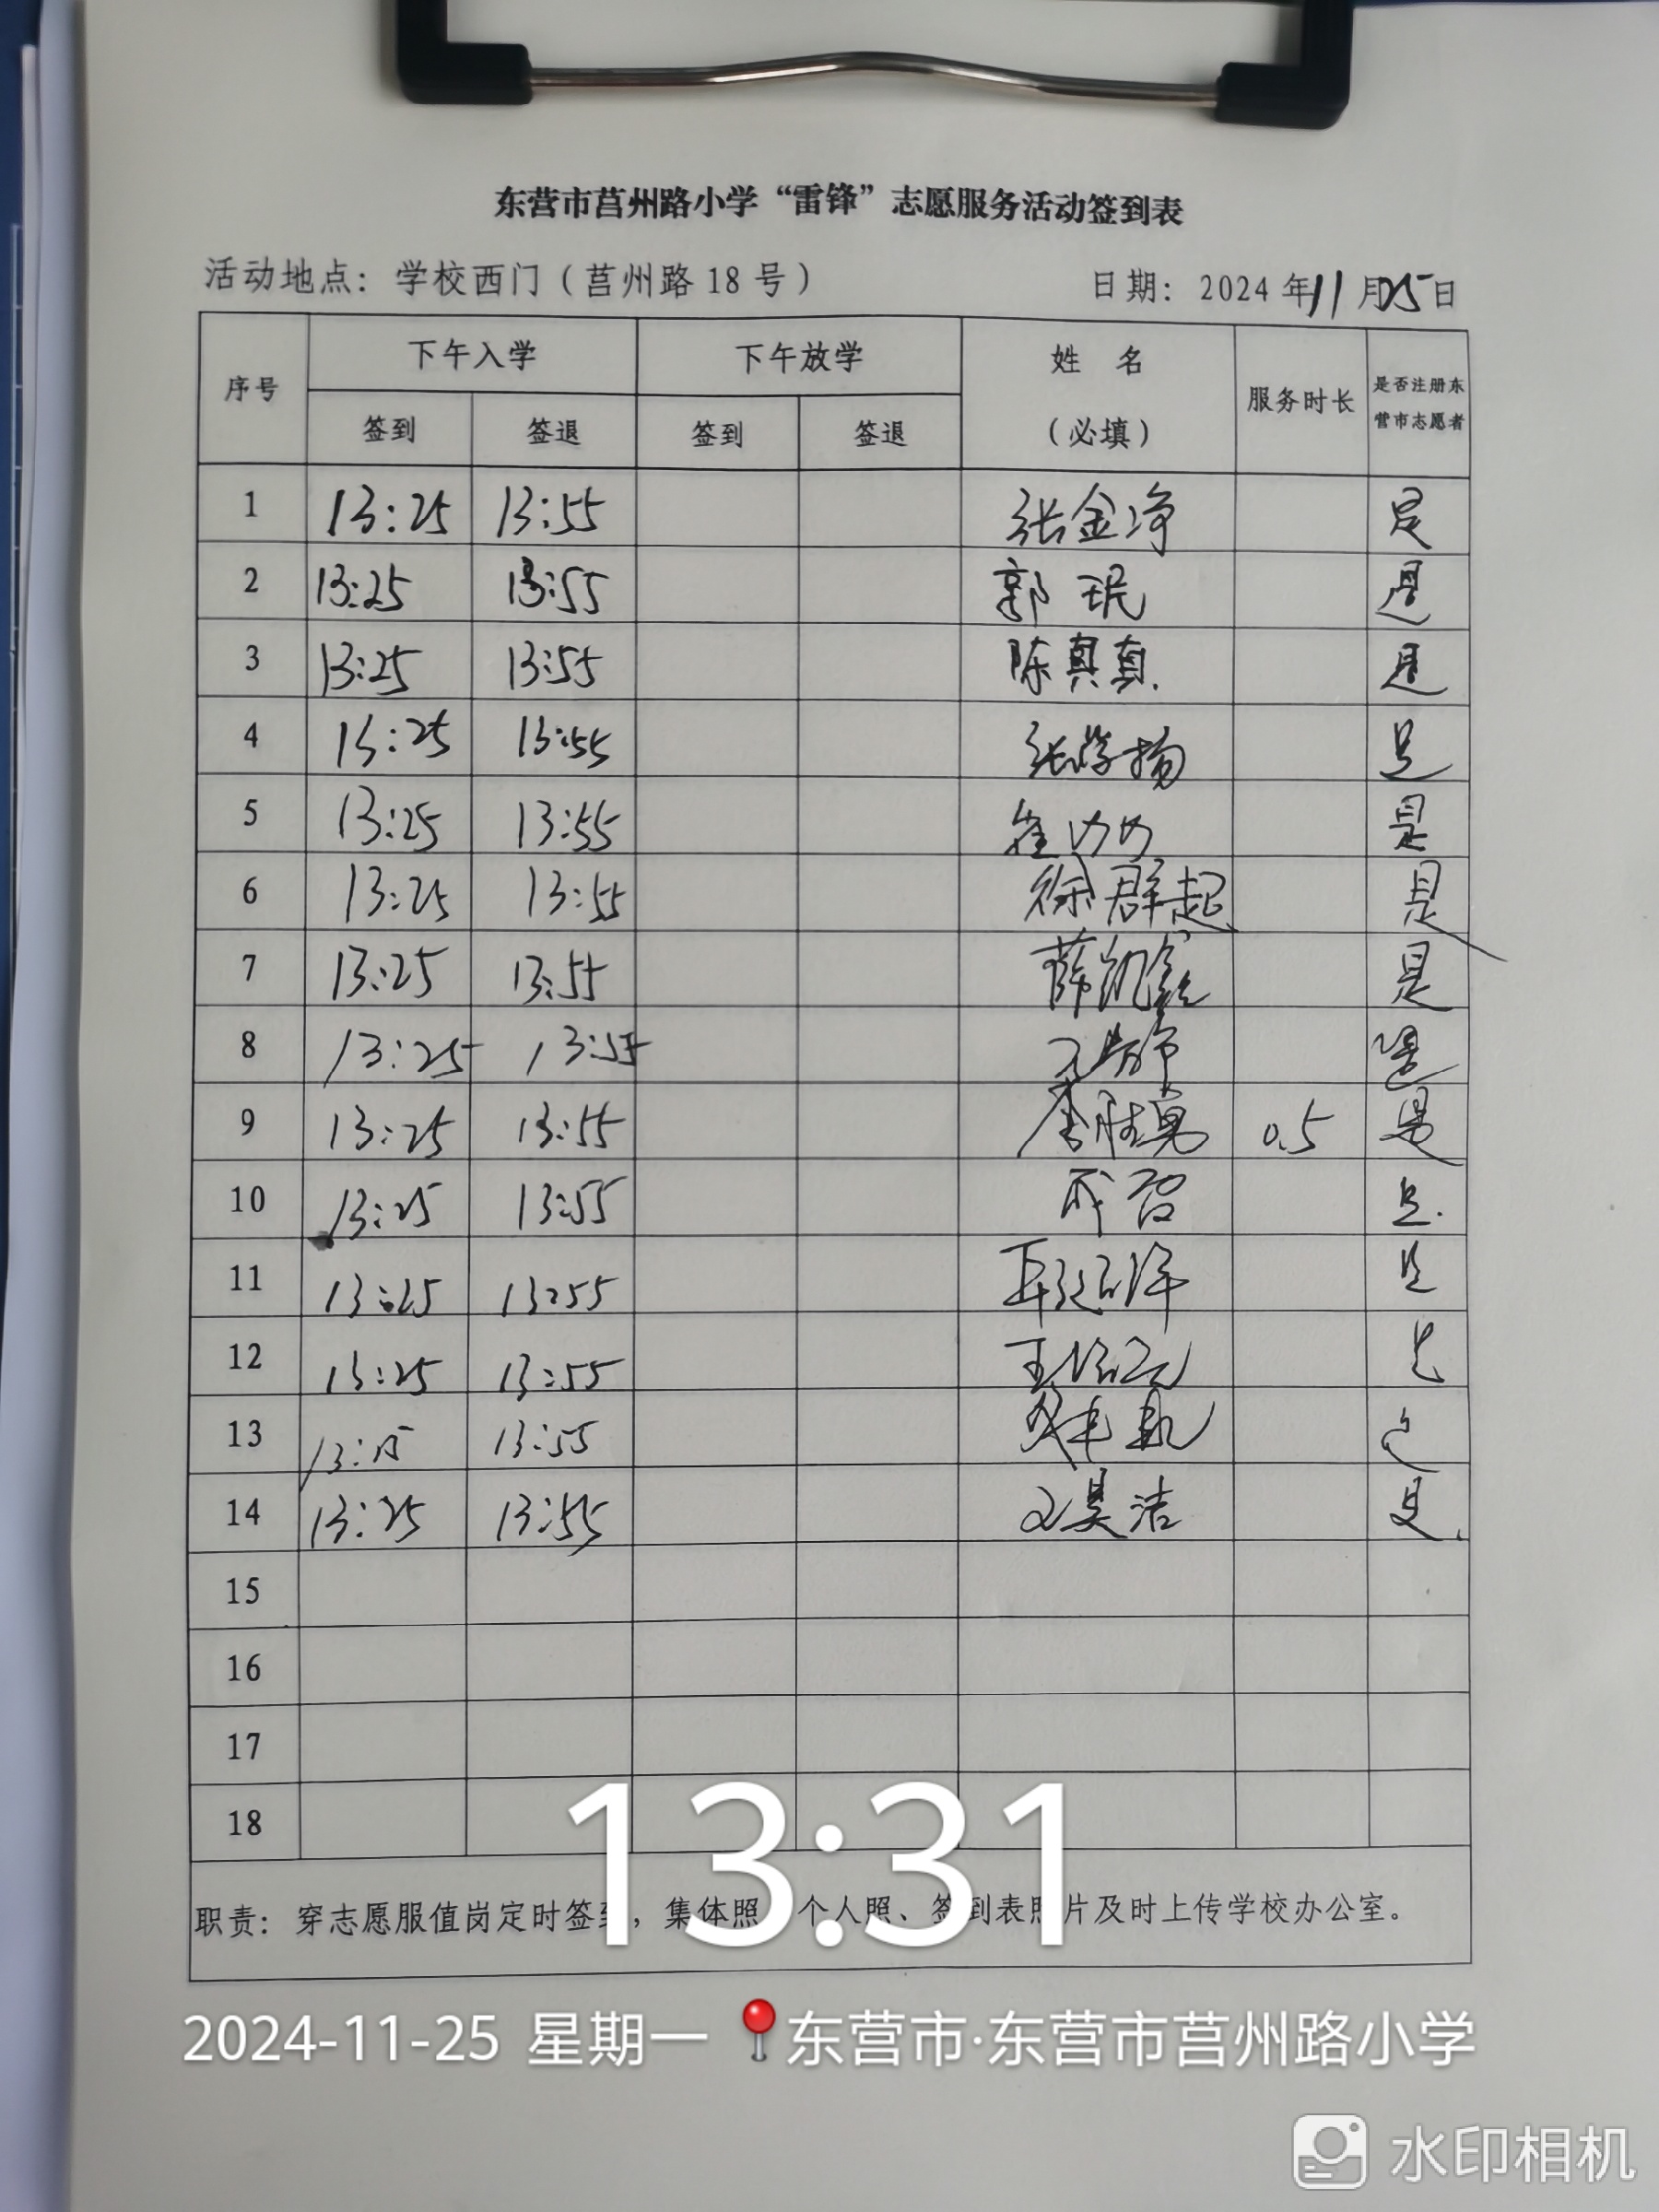 东营市莒州路小学“雷锋”志愿服务活动签到表
活动地点：学校西门（莒州路 18 号） 日期：2024 年 11 月 25 日
序号 下午入学 下午放学 姓 名 （必填） 服务时长 是否注册东营市志愿者
签到 签退 签到 签退
1 13:25 13:55 张金净 是
2 13:25 13:55 郭珉 是
3 13:25 13:55 陈真真 是
4 13:25 13:55 张学扬 是
5 13:25 13:55 崔 是
6 13:25 13:55 徐群起 是
7 13:25 13:55 薛凯 是
8 13:25 13:55 是
9 13:25 13:55 李胜勇 0.5 是
10 13:25 13:55 是
11 13:25 13:55 是
12 13:25 13:55 王 是
13 13:25 13:55 是
14 13:25 13:55 洁 是
15
16
17
18
职责：穿志愿服值岗定时签到，集体照、个人照、签到表照片及时上传学校办公室。
13:31
2024-11-25 星期一 东营市·东营市莒州路小学
水印相机